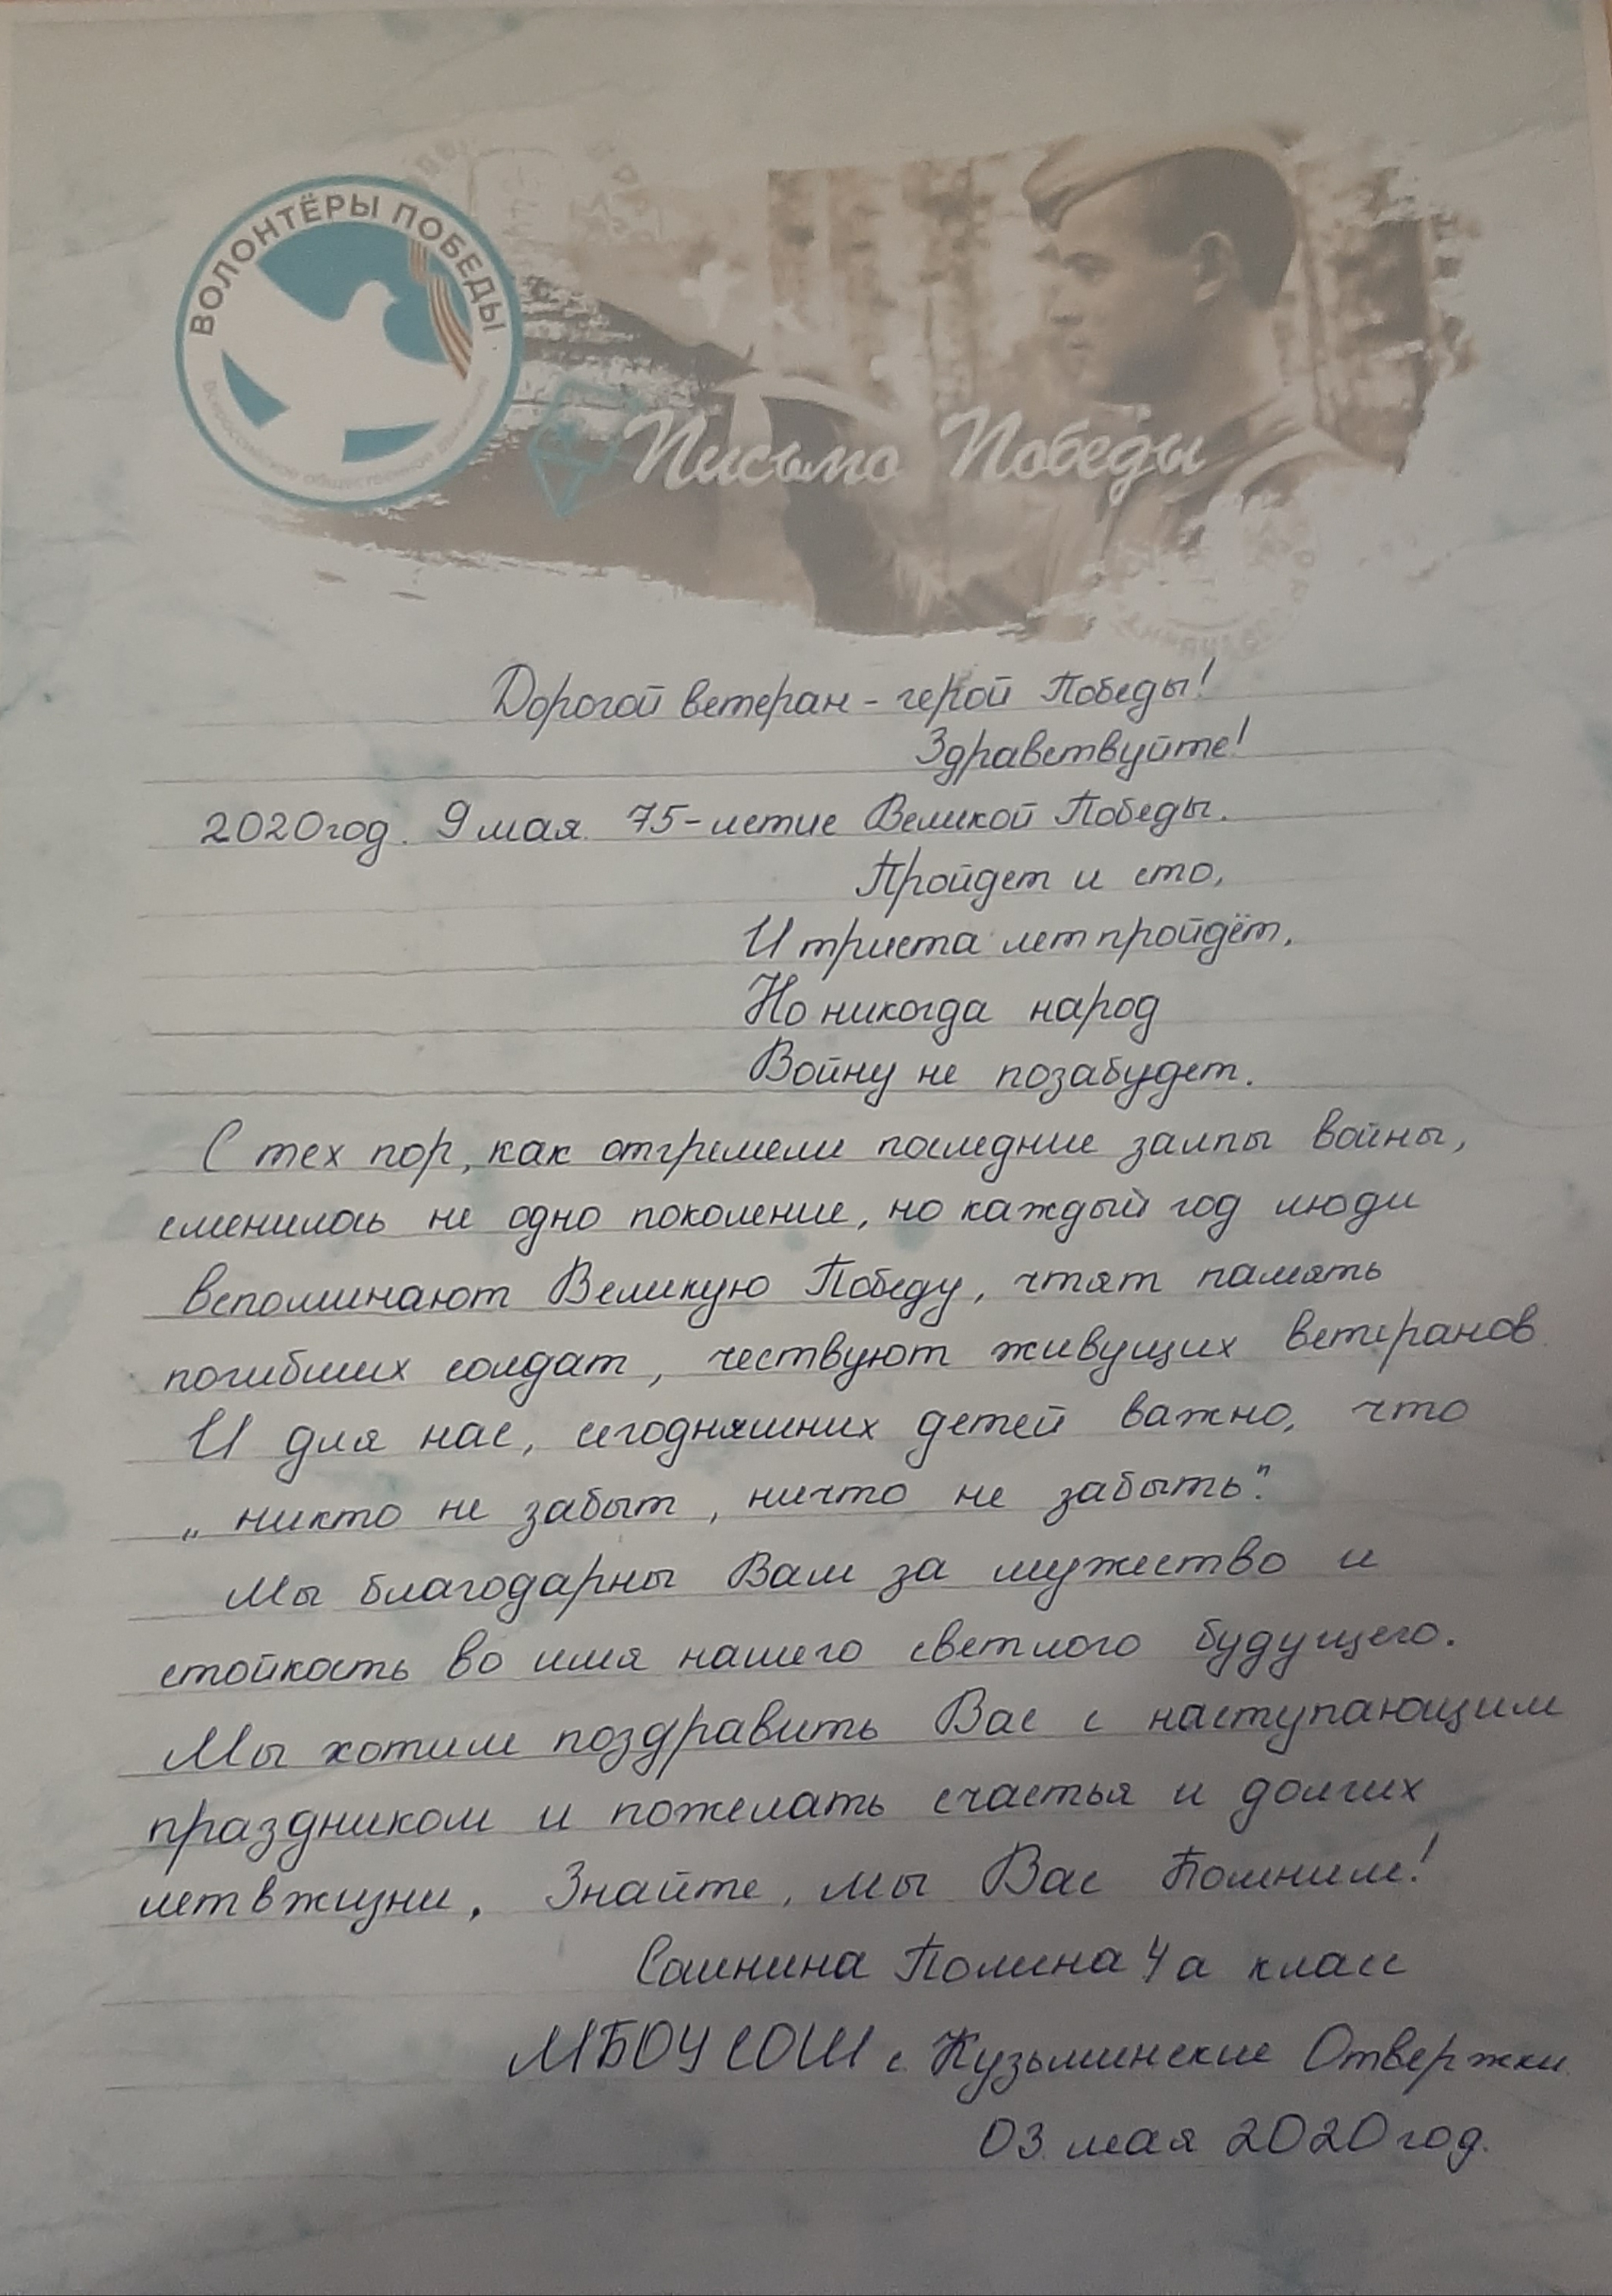 ВОЛОНТЁРЫ ПОБЕДЫ
Всероссийское общественное движение
Письмо Победы
Дорогой ветеран - герой Победы!
Здравствуйте!
2020 год. 9 мая. 75-летие Великой Победы.
Пройдет и сто,
И триста лет пройдёт,
Но никогда народ
Войну не позабудет.
С тех пор, как отгремели последние залпы войны,
сменилось не одно поколение, но каждый год люди
вспоминают Великую Победу, чтят память
погибших солдат, чествуют живущих ветеранов.
И для нас, сегодняшних детей важно, что
„никто не забыт, ничто не забыть".
Мы благодарны Вам за мужество и
стойкость во имя нашего светлого будущего.
Мы хотим поздравить Вас с наступающим
праздником и пожелать счастья и долгих
лет в жизни. Знайте, мы Вас Помним!
Полина 4 а класс
МБОУ СОШ с. Кузьминские Отвержки
03 мая 2020 год.